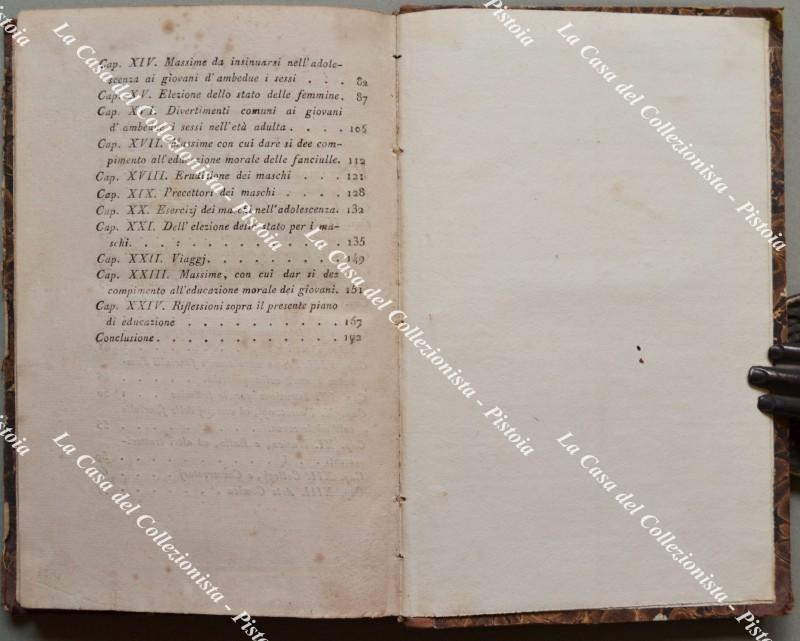 Cap. XIV. Massime da insinuarsi nell'adole-
scenza ai giovani d'ambedue i sessi . . . 82
Cap. XV. Elezione dello stato delle femmine. 87
Cap. XVI. Divertimenti comuni ai giovani
d'ambedue i sessi nell'età adulta . . . . 106
Cap. XVII. Massime con cui dare si dee com-
pimento all'educazione morale delle fanciulle. 112
Cap. XVIII. Erudizione dei maschi . . . 121
Cap. XIX. Precettori dei maschi . . . . 128
Cap. XX. Esercizj dei maschi nell'adolescenza. 132
Cap. XXI. Dell'elezione dello stato per i ma-
schi. . . : . . . . . . . . . 135
Cap. XXII. Viaggj. . . . . . . . . 149
Cap. XXIII. Massime, con cui dar si dee
compimento all'educazione morale dei giovani. 151
Cap. XXIV. Riflessioni sopra il presente piano
di educazione . . . . . . . . . . 167
Conclusione . . . . . . . . . . . . 192
La Casa del Collezionista - Pistoia
La Casa del Collezionista - Pistoia
La Casa del Collezionista - Pistoia
La Casa del Collezionista - Pistoia
La Casa del Collezionista
La Casa del Collezionista
Pistoia
Pistoia